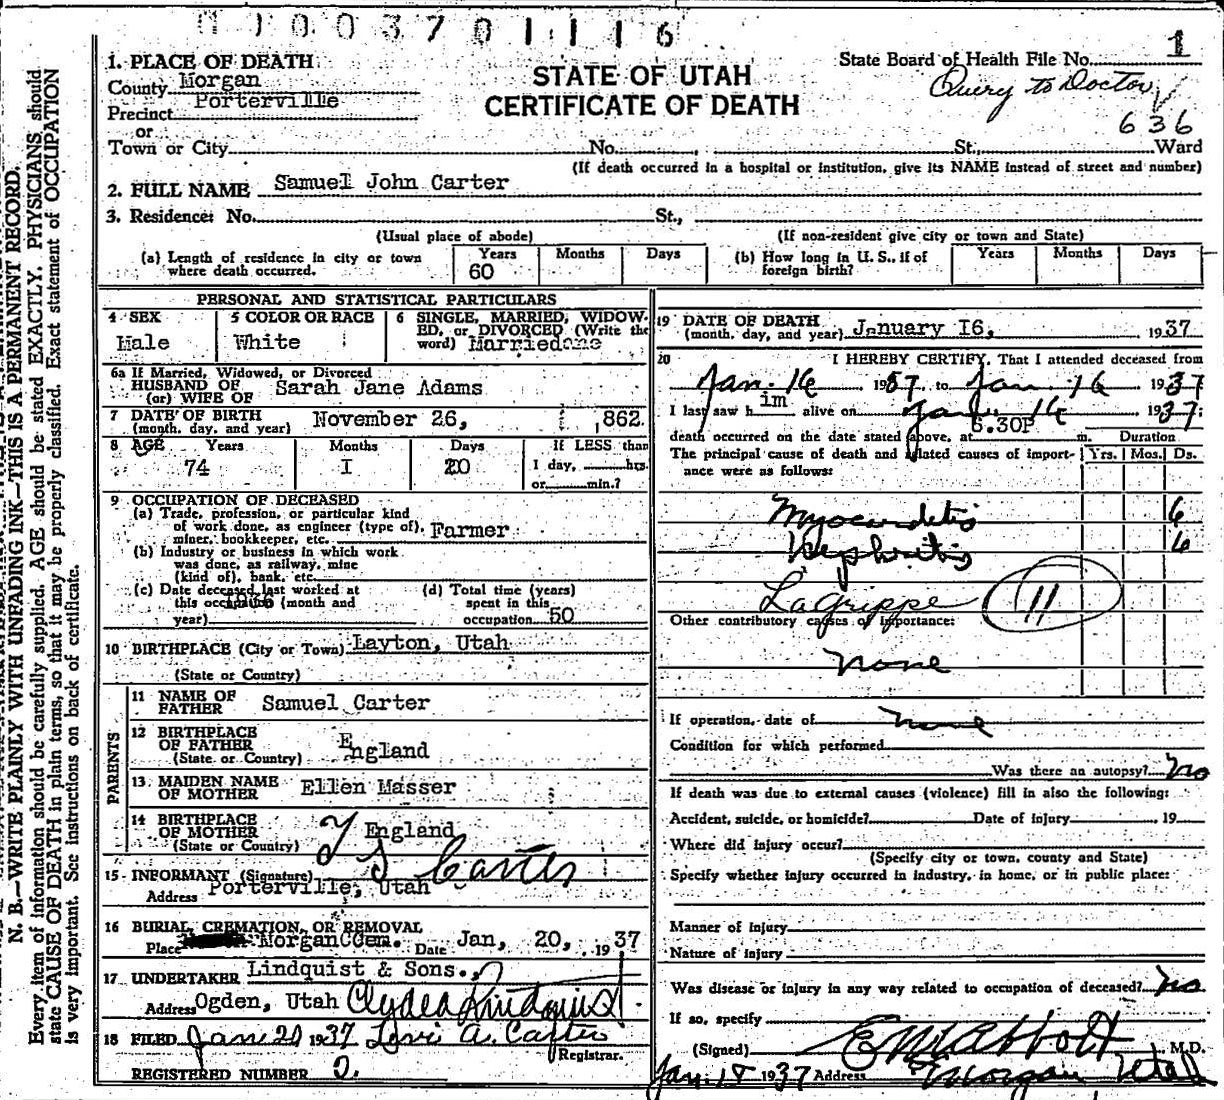 0 1 0 0 3 7 0 1 1 1 6
1
1. PLACE OF DEATH
County Morgan
Precinct Porterville
or
Town or City
STATE OF UTAH
CERTIFICATE OF DEATH
State Board of Health File No.
Query to Doctor
636
No. St., Ward
(If death occurred in a hospital or institution, give its NAME instead of street and number)
2. FULL NAME Samuel John Carter
3. Residence: No. St.,
(Usual place of abode) (If non-resident give city or town and State)
(a) Length of residence in city or town where death occurred. Years 60 Months Days
(b) How long in U. S., if of foreign birth? Years Months Days
PERSONAL AND STATISTICAL PARTICULARS
4 SEX Male
5 COLOR OR RACE White
6 SINGLE, MARRIED, WIDOWED, or DIVORCED (Write the word) Married
6a If Married, Widowed, or Divorced
HUSBAND OF Sarah Jane Adams
(or) WIFE OF
7 DATE OF BIRTH
(month, day, and year) November 26, 862
8 AGE Years 74 Months I Days 20
If LESS than
1 day, hrs.
or min.?
9 OCCUPATION OF DECEASED
(a) Trade, profession, or particular kind
of work done, as engineer (type of), Farmer
miner, bookkeeper, etc.
(b) Industry or business in which work
was done, as railway, mine
(kind of), bank, etc.
(c) Date deceased last worked at
this occupation (month and
year)
(d) Total time (years)
spent in this
occupation 50
10 BIRTHPLACE (City or Town) Layton, Utah
(State or Country)
PARENTS
11 NAME OF FATHER Samuel Carter
12 BIRTHPLACE OF FATHER England
(State or Country)
13. MAIDEN NAME OF MOTHER Ellen Masser
14 BIRTHPLACE OF MOTHER England
(State or Country)
15 INFORMANT (Signature) T S Carter
Address Porterville, Utah
16 BURIAL, CREMATION, OR REMOVAL
Place Morgan Cem. Date Jan, 20, 1937
17 UNDERTAKER Lindquist & Sons.,
Address Ogden, Utah Clyde Lindquist
18 FILED Jan 20 1937 Carter
Registrar.
REGISTERED NUMBER 2.
19 DATE OF DEATH
(month, day, and year) January I6, 1937
20 I HEREBY CERTIFY, That I attended deceased from
Jan. 16 1937, to Jan. 16 1937
I last saw him alive on Jan. 16 1937;
death occurred on the date stated above, at 6.30P m. Duration
The principal cause of death and related causes of importance were as follows: Yrs. Mos. Ds.
Myocarditis 6
Nephritis 6
LaGrippe 11
Other contributory causes of importance:
none
If operation, date of none
Condition for which performed
Was there an autopsy? no
If death was due to external causes (violence) fill in also the following:
Accident, suicide, or homicide? Date of injury 19
Where did injury occur?
(Specify city or town, county and State)
Specify whether injury occurred in industry, in home, or in public place:
Manner of injury
Nature of injury
Was disease or injury in any way related to occupation of deceased? no
If so, specify
(Signed) E M Abbott M.D.
Jan. 18 1937 Address Morgan Utah
N. B.—WRITE PLAINLY WITH UNFADING INK—THIS IS A PERMANENT RECORD.
Every item of information should be carefully supplied. AGE should be stated EXACTLY. PHYSICIANS should
state CAUSE OF DEATH in plain terms, so that it may be properly classified. Exact statement of OCCUPATION
is very important. See instructions on back of certificate.